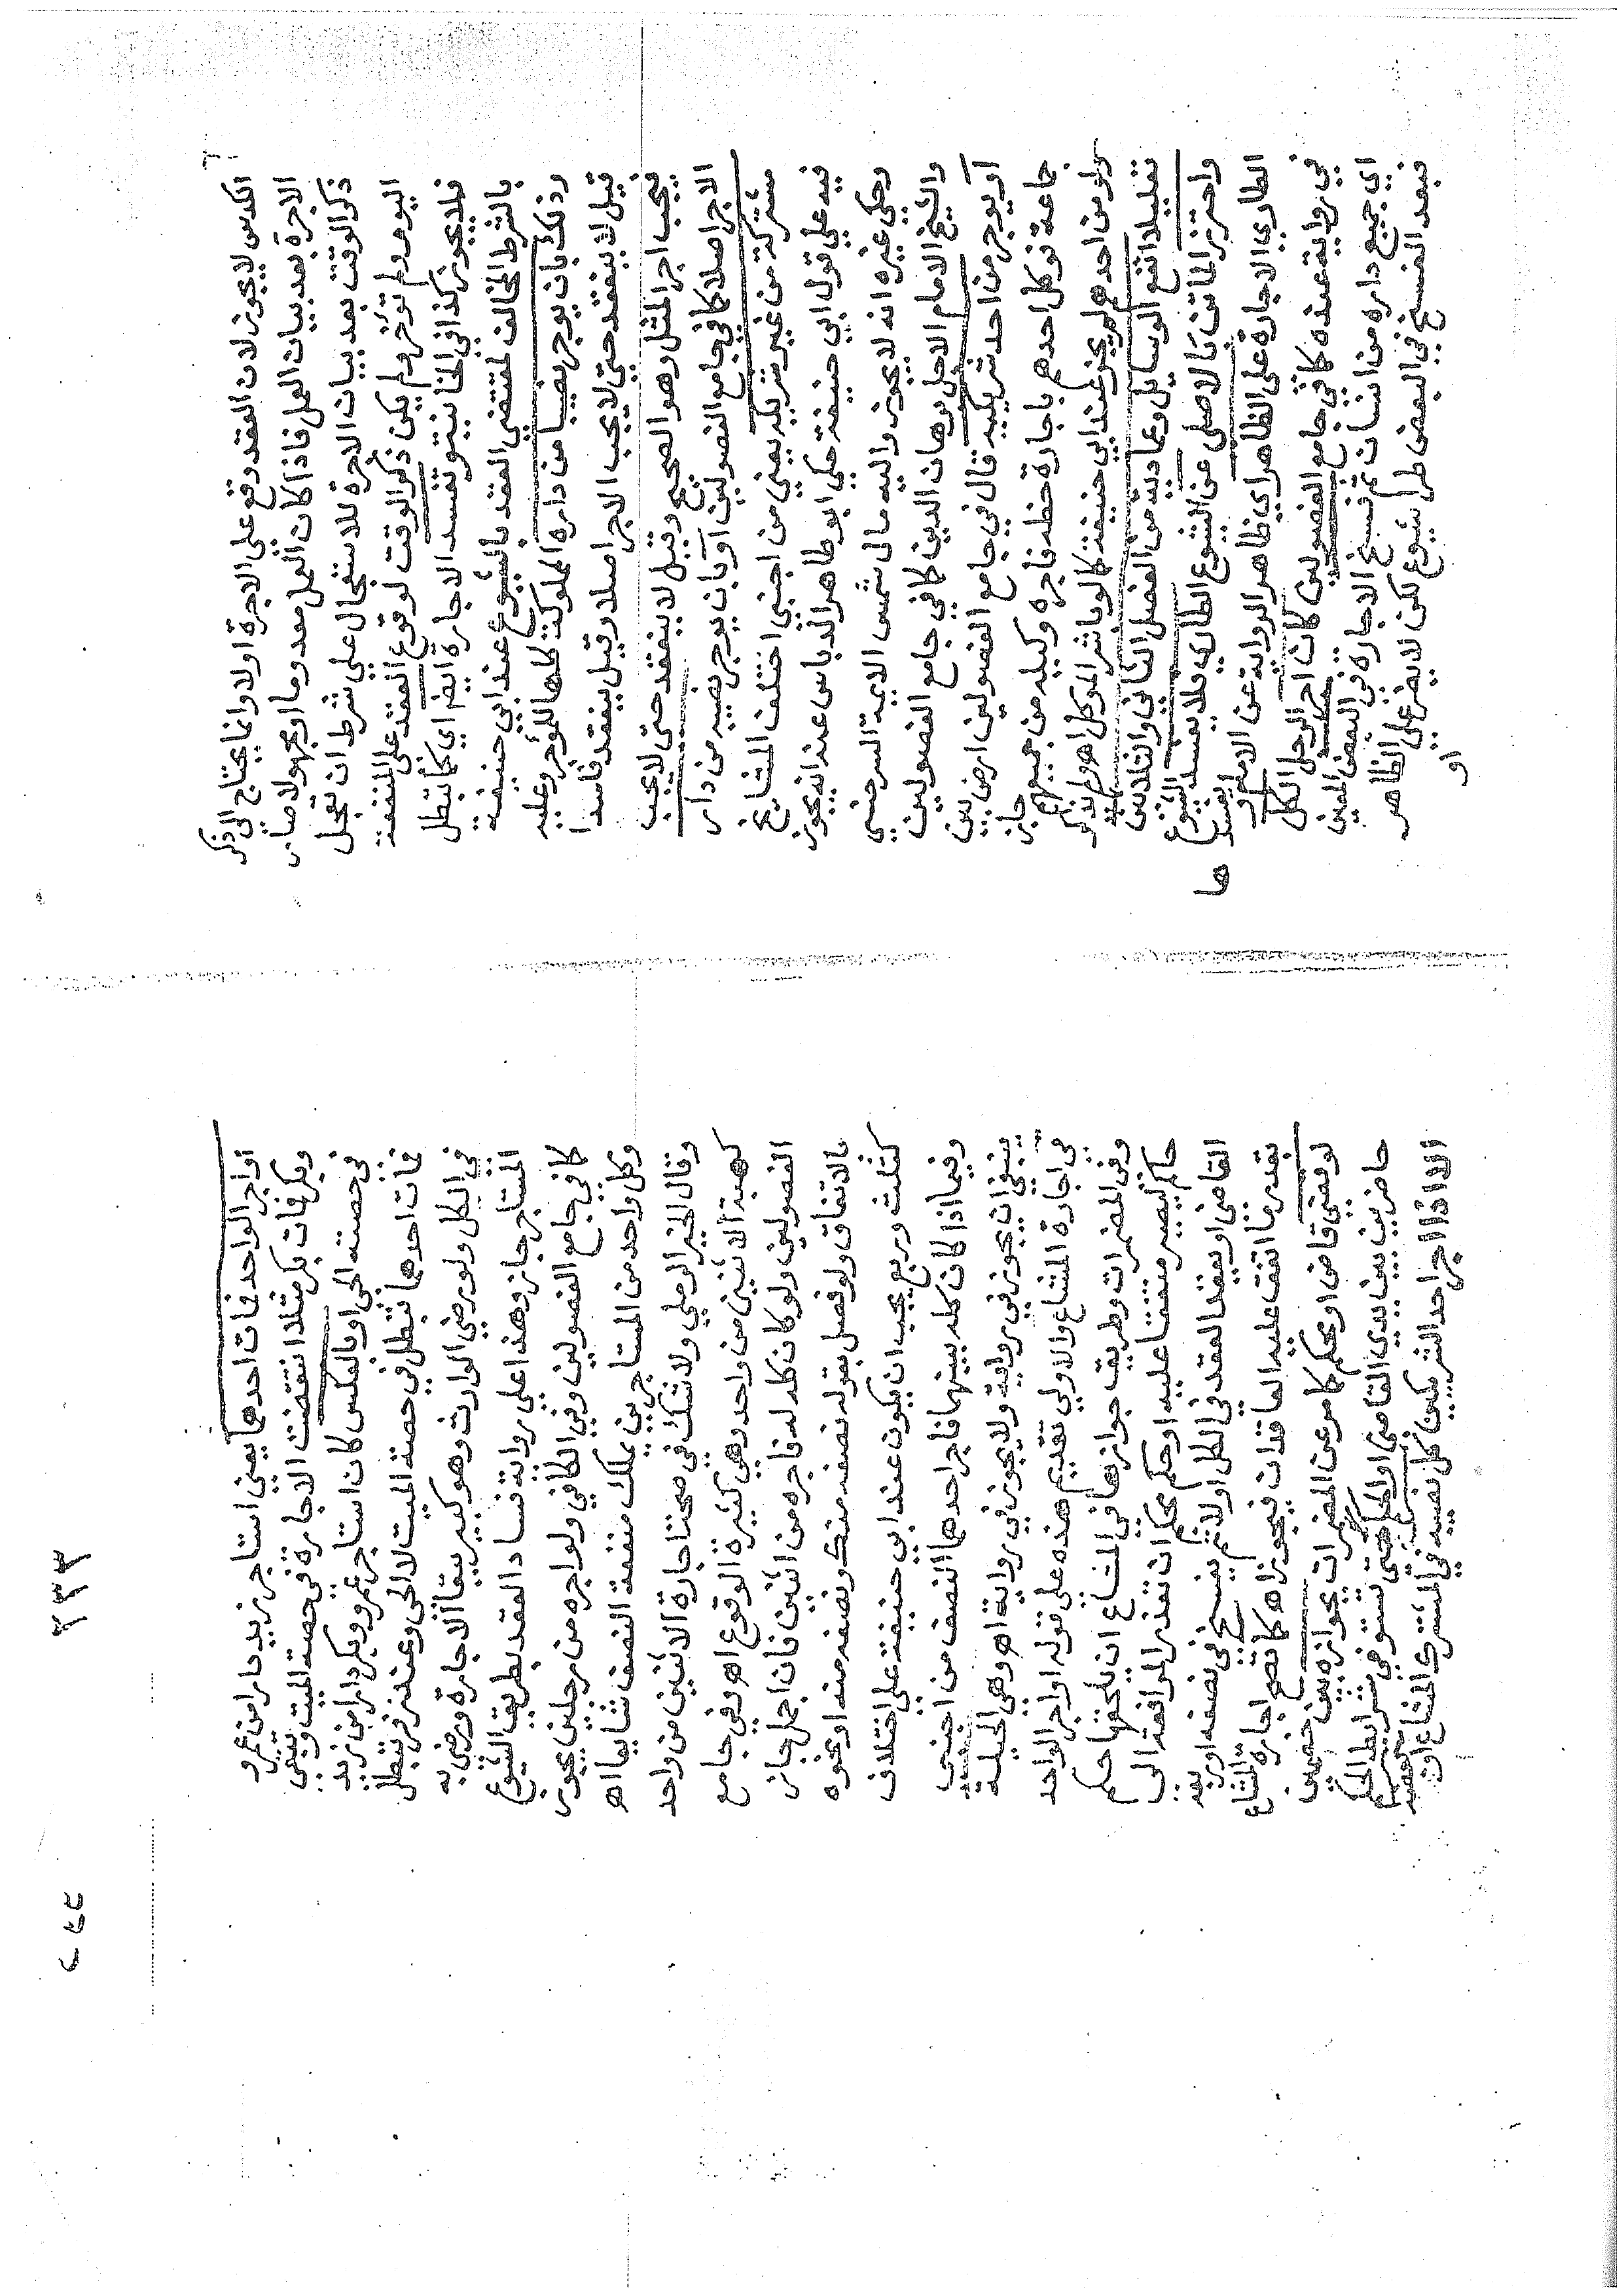 الكدس لا يجوز لان العقد وقع على الاجرة اولا وانما يحتاج الى ذكر
الاجرة بعد بيان العمل فاذا كان العمل معدوما او مجهولا صار
ذكر الوقت بعد بيان الاجرة للاستعجال على شرط ان تعجل
اليوم ولم تؤخر ولم يكن ذكر الوقت لوقوع العقد على المنفعة
فلا يجوز كذا في الخانية وتفسد الاجارة ايضا اي كما تبطل
بالشرط المخالف لمقتضى العقد بالشيوع عند ابي حنيفة
وذلك بان يوجر نصيبا من داره المملوكة كلها للمؤجر وعليه
قيل لا ينعقد حتى لا يجب الاجر اصلا وقيل ينعقد فاسدا
فيجب اجر المثل وهو الصحيح وقيل لا ينعقد حتى لا يجب
الاجر اصلا كما في جامع الفصولين او بان يوجر نصيبه من دار
مشتركة من غير شريكه يعني من اجنبي اختلف المشايخ
فيه على قول ابي حنيفة حكى ابو طاهر الدباس عنه انه يجوز
وحكى غيره انه لا يجوز واليه مال شمس الايمة السرخسي
والشيخ الامام الاجل برهان الدين كما في جامع الفصولين
او يوجر من احد شريكيه قال في جامع الفصولين ارض بين
جماعة توكل احدهم باجارة حظه فاجره وكيله من جميعهم جاز
ولو من احدهم لم يجز عند ابي حنيفة كما لو باشر الموكل اه ولم يذكر
تعليلا انفع الوسايل وعماديه من الفصل الثاني والثلاثين
واحترز الماتن بالاصلي عن الشيوع الطاري فلا يفسد الشيوع
الطاري الاجارة على الظاهر اي ظاهر الرواية عن الامام ويفسد
في رواية عنه كما في جامع الفصولين كان اجر الرجل الكل
اي جميع داره من انسان ثم فسخ الاجارة في البعض المعين
فبعد الفسخ في البعض طرا شيوع لكن لا يضر على الظاهر
او
او اجر الواحد فمات احدهما يعني استاجر زيد دار ابن عمرو
وبكر فمات بكر مثلا انتقضت الاجارة في حصة الميت وتبقى
في حصته الحي او بالعكس كان استاجر عمرو وبكر دار ابن زيد
فمات احدهما تبطل في حصة الميت لا الحي وعند زفر تبطل
في الكل ولو رضي الوارث وهو كبير ببقا الاجارة ورضي به
المستاجر جاز وهذا على رواية فساد العقد بطريق الشيوع
كما في جامع الفصولين وفي الكافي ولو اجره من رجلين يجوز
وكل واحد من المستاجرين يملك منفعة النصف شايعا اه
وقال الخير الرملي ولا شك في صحتها اجارة الاثنين من واحد
كهبة الاثنين من واحد وهي كثيرة الوقوع اه وفي جامع
الفصولين ولو كان كله له فاجره من اثنين فان اجمل جاز
بالاتفاق ولو فصل بقوله نصفه منك ونصفه منه او نحوه
كثلث وربع يجب ان يكون عند ابي حنيفة على اختلاف
وفيما اذا كان كله بينهما فاجر احدهما النصف من اجنبي
ينبغي ان يجوز في رواية ولا يجوز في رواية اه وهي الحيلة
في اجارة المشاع والاولى تقديم هذه على قوله او اجر الواحد
وفي المضمرات وطريق جوازها في المشاع ان يلحقها حكم
حاكم ليصير متفقا عليه او حكم محكم ان تعذر المرافعة الى
القاضي او يعقد العقد في الكل اولا ثم يفسخ في نصفه او ربعه
بقدر ما اتفق عليه العاقدان فيجوز اه كما تصح اجارة المشاع
لو قضى قاض او محكم كما مر عن المضمرات بجوازه بين خصمين
حاضرين بين يدي القاضي او المحكم حتى تستوفى شرايط الحكم
الا اذا اجر احد الشريكين كل نصيبه في المشترك المشاع او
٢٣٣